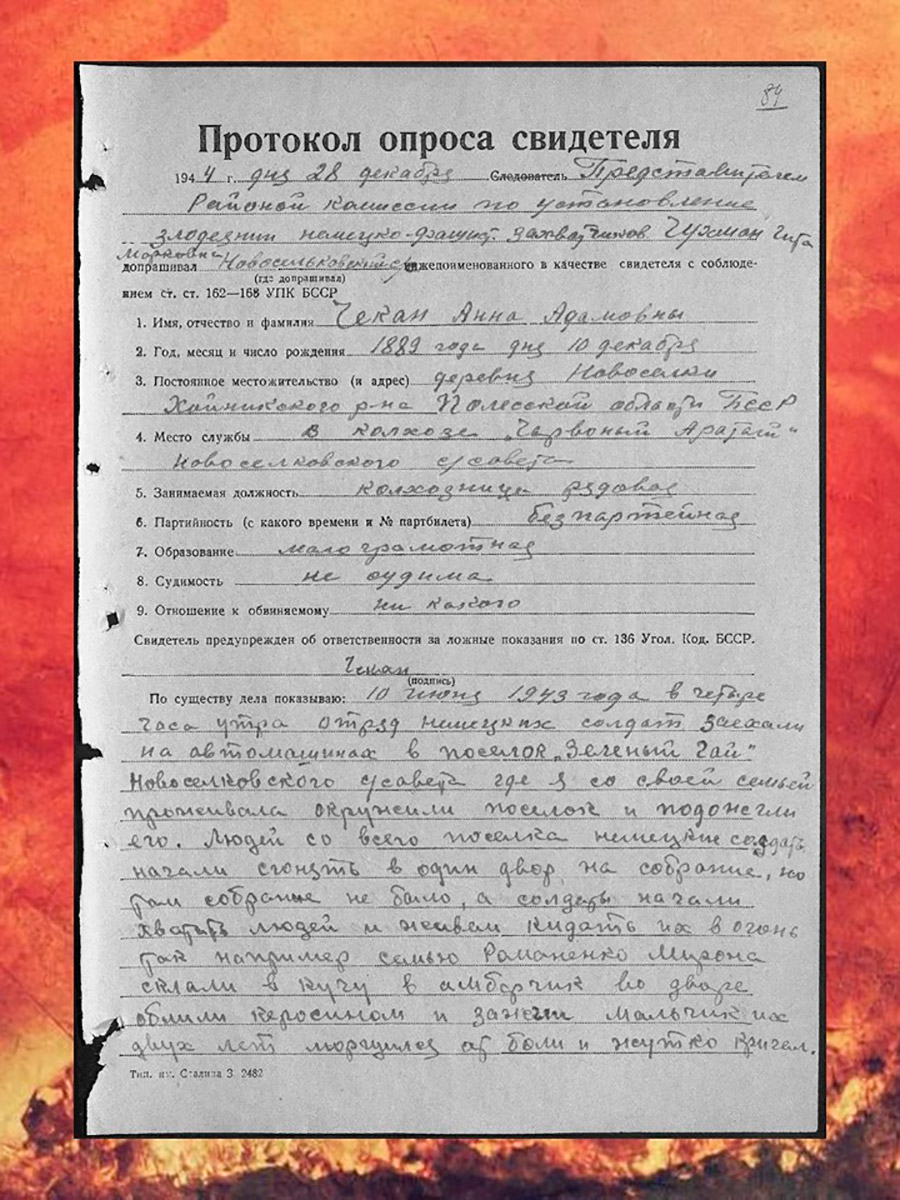 84
Протокол опроса свидетеля
1944 г. дня 28 декабря Следователь Представителем
Районой комиссии по установление
злодеянии немецко-фашист. захватчиков Гухман Гита
Марковна
допрашивал Новосельковский с/ нижепоименованного в качестве свидетеля с соблюде-
(где допрашивал)
нием ст. ст. 162—168 УПК БССР
1. Имя, отчество и фамилия Чекан Анна Адамовны
2. Год, месяц и число рождения 1889 года дня 10 декабря
3. Постоянное местожительство (и адрес) деревня Новоселки
Хойникского р-на Полесской области БССР
4. Место службы в колхозе „Чырвоный Аратай“
Новоселковского с/совета
5. Занимаемая должность колхозница рядовая
6. Партийность (с какого времени и № партбилета) безпартейная
7. Образование мало грамотная
8. Судимость не судима
9. Отношение к обвиняемому ни какого
Свидетель предупрежден об ответственности за ложные показания по ст. 136 Угол. Код. БССР.
Чекан
(подпись)
По существу дела показываю: 10 июня 1943 года в четыре
часа утра отряд немецких солдат заехали
на автомашинах в поселок „Зеленый Гай“
Новоселковского с/совета где я со своей семьей
проживала окружили поселок и подожгли
его. Людей со всего поселка немецкие солдаты
начали сгонять в один двор на собрание, но
там собрание не было, а солдаты начали
хватать людей и живем кидать их в огонь
так например семью Романенко Мирона
склали в кучу в амбарчик во дворе
облили керосином и зажгли мальчик их
двух лет морщился от боли и жутко кричал.
Тип. им. Сталина З. 2482